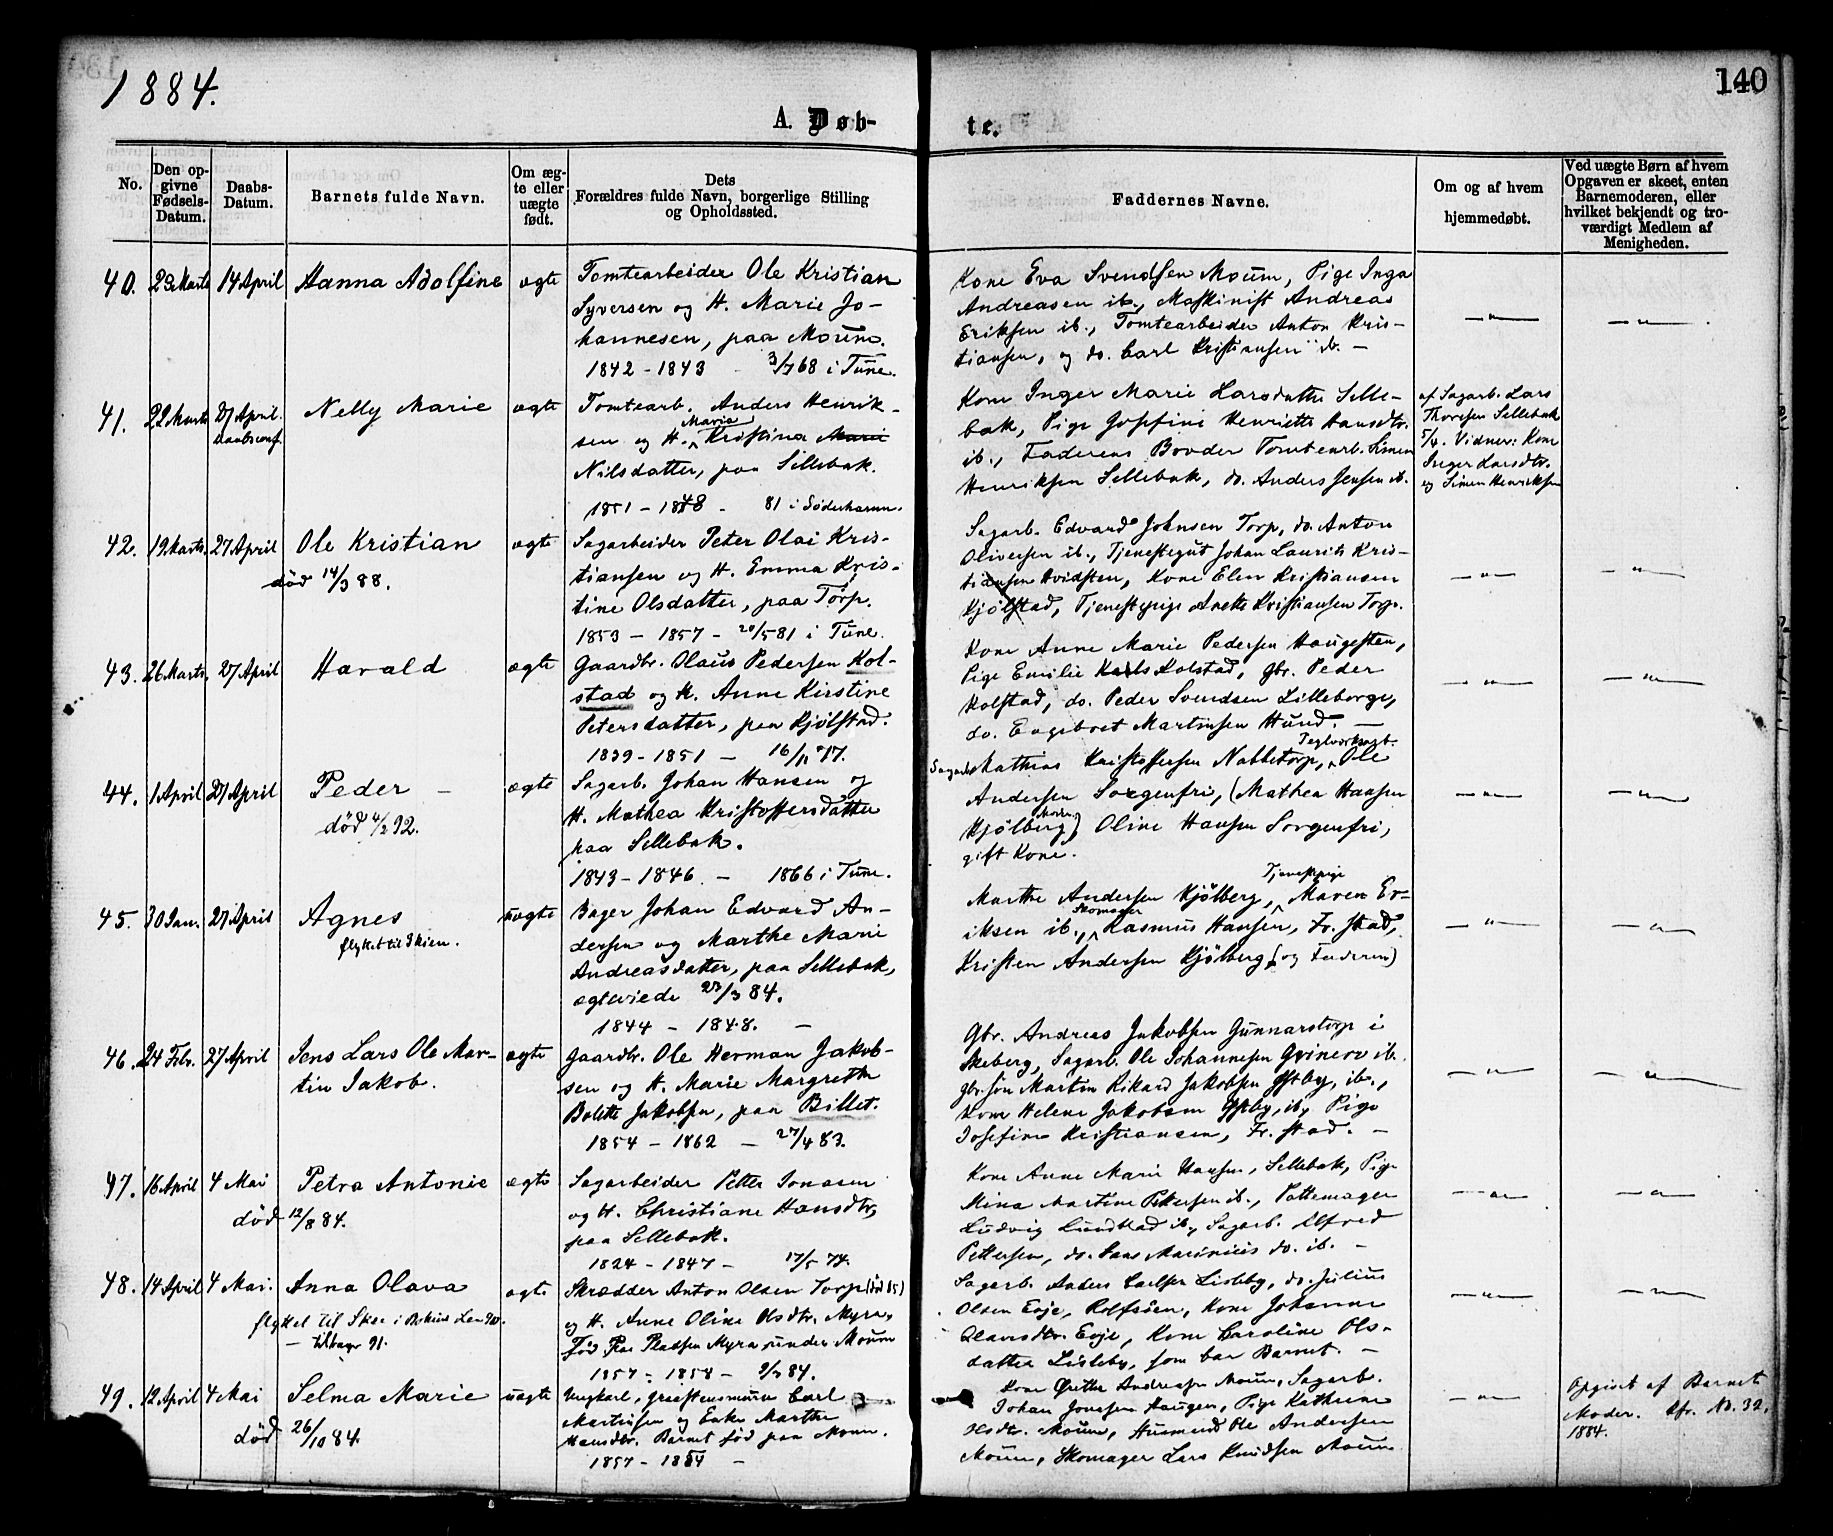 1884.
140
A. Døb-
te.
No.
Den op-
givne
Fødsels-
Datum.
Daabs-
Datum.
Barnets fulde Navn.
Om æg-
te eller
uægte
født.
Dets
Forældres fulde Navn, borgerlige Stilling
og Opholdssted.
Faddernes Navne.
Om og af hvem
hjemmedøbt.
Ved uægte Børn af hvem
Opgaven er skeet, enten
Barnemoderen, eller
hvilket bekjendt og tro-
værdigt Medlem af
Menigheden.
40. 23 Marts 14 April Hanna Adolfine ægte
Tomtearbeider Ole Kristian
Syversen og H. Marie Jo-
hannesen, paa Moum.
1842 - 1843 - 3/7 68 i Tune.
Kone Eva Svendsen Moum, Pige Inga
Andreasen ib., Maskinist Andreas
Eriksen ib., Tomtearbeider Anton Kris-
tiansen, og do. Carl Kristiansen ib. -
41. 22 Marts 27 April. Nelly Marie ægte
daabsconf.
Tomtearb. Anders Henrik-
sen og H. Maria Kristina Marie
Nilsdatter, paa Sellebak.
1851 - 1848 - 81 i Söderhamn.
Kone Inger Marie Larsdatter Selle-
bak, Pige Josefine Henriette Hansdtr.
ib., Faderens Broder Tomtearb. Simen
Henriksen Sellebak, do. Anders Jensen ib.
af Sagarb. Lars
Thoresen Sellebak
5/4. Vidner: Kone
Inger Larsdtr.
og Simen Henriksen
42. 19 Marts 27 April Ole Kristian ægte
død 14/3 88.
Sagarbeider Peter Olai Kris-
tiansen og H. Emma Kris-
tine Olsdatter, paa Torp.
1853 - 1857 - 20/5 81 i Tune.
Sagarb. Edvard Johnsen Torp, do. Anton
Oliversen ib., Tjenestegut Johan Laurits Kris-
tiansen Hvidsten, Kone Elen Kristiansen
Kjölstad, Tjenestepige Anette Kristiansen Torp.
43. 26 Marts, 27 April Harald ægte
Gaardbr. Olaus Pedersen Kol-
stad og H. Anne Kirstine
Petersdatter, paa Kjölstad.
1839 - 1851 - 16/11 77.
Kone Anne Marie Pedersen Haugesten,
Pige Emilie Karls Kolstad, Gbr. Peder
Kolstad, do. Peder Svendsen Lilleborge,
do. Engebret Martinsen Hund. -
44. 1 April 27 April Peder - ægte
død 4/2 92.
Sagarb. Johan Hansen og
H. Mathea Kristoffersdatter
paa Sellebak.
1843 - 1846 - 1866 i Tune.
Sagarb. Mathias Kristoffersen Nabbetorp, Teglverksarb. Ole
Andersen Sorgenfri, (Mathea Hansen
Kjölberg) Oline Hansen Sorgenfri,
gift Kone.
45. 30 Jan. 27 April Agnes uægte
flyttet til Skien.
Bager Johan Edvard An-
dersen og Marthe Marie
Andreasdatter, paa Sellebak,
ægteviede 23/3 84.
1844 - 1848. -
Marthe Andersen Kjölberg, Tjenestepige Maren Er-
iksen ib., Skomager Rasmus Hansen, Fr. stad,
Kristen Andersen Kjölberg (og Faderen)
46. 24 Febr. 27 April Jens Lars Ole Mar- ægte
tin Jakob.
Gaardbr. Ole Herman Jakob-
sen og H. Marie Margrethe
Bolette Jakobsen, paa Billet.
1854 - 1862 - 27/4 83.
Gbr. Andreas Jakobsen Gunnarstorp i
Skeberg, Sagarb. Ole Johannesen Grinero ib.
Gbr. søn Martin Rikard Jakobsen Ystby, ib.,
Kone Helene Jakobsen Ystby, ib, Pige
Josefine Kristiansen, Fr. stad. -
47. 16 April 4 Mai Petra Antonie ægte
død 12/8 84.
Sagarbeider Petter Jonasen
og H. Christiane Hansdtr,
paa Sellebak.
1824 - 1847 - 17/5 74.
Kone Anne Marie Hansen, Sellebak, Pige
Mina Martine Pettersen ib., Pottemager
Ludvig Lundblad ib, Sagarb. Alfred
Pettersen, do. Hans Marinius do. ib. -
48. 14 April 4 Mai. Anna Olava ægte
flyttet til Skee i Bohus Len 90.
- tilbage 91.
Skrædder Anton Olsen Torp (død 85)
og H. Anne Oline Olsdtr. Myra,
Född Paa Pladsen Myra under Moum
1857 - 1858 - 9/3 84.
Sagarb. Anders Carlsen Lisleby, do. Julius
Olsen Evje, Rolfsöen, Kone Johanne
Olavsdtr. Evje, Kone Caroline Ols-
datter Lisleby, som bar Barnet. -
49. 12 April 4 Mai Selma Marie uægte
død 26/10 84.
Ungkarl, Graastensmurer Carl
Martinsen og Enke Marthe
Hansdtr. Barnet fød paa Moum.
1857 - 1851 -
Kone Grethe Andreasen Moum, Sagarb.
Johan Jonasen Haugen, Pige Kathrine
Olsdtr. Moum, Husmand Ole Andersen
Moum, Skomager Lars Knudsen Moum
Opgivet af Barnets
Moder. Cfr. No. 32,
1884.